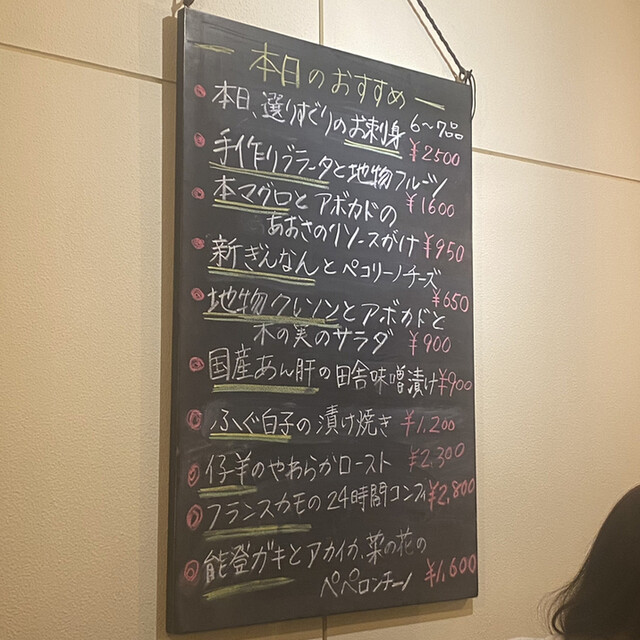 本日のおすすめ
本日、選りすぐりのお刺身 6〜7品
¥2500
手作りブラータと地物フルーツ
¥1600
本マグロとアボカドの
あおさのりソースがけ ¥950
新ぎんなんとペコリーノチーズ
¥650
地物クレソンとアボカドと
木の実のサラダ ¥900
国産あん肝の田舎味噌漬け ¥900
ふぐ白子の漬け焼き ¥1,200
仔羊のやわらかロースト ¥2,300
フランスカモの24時間コンフィ ¥2,800
能登ガキとアカイカ、菜の花の
ペペロンチーノ ¥1,600